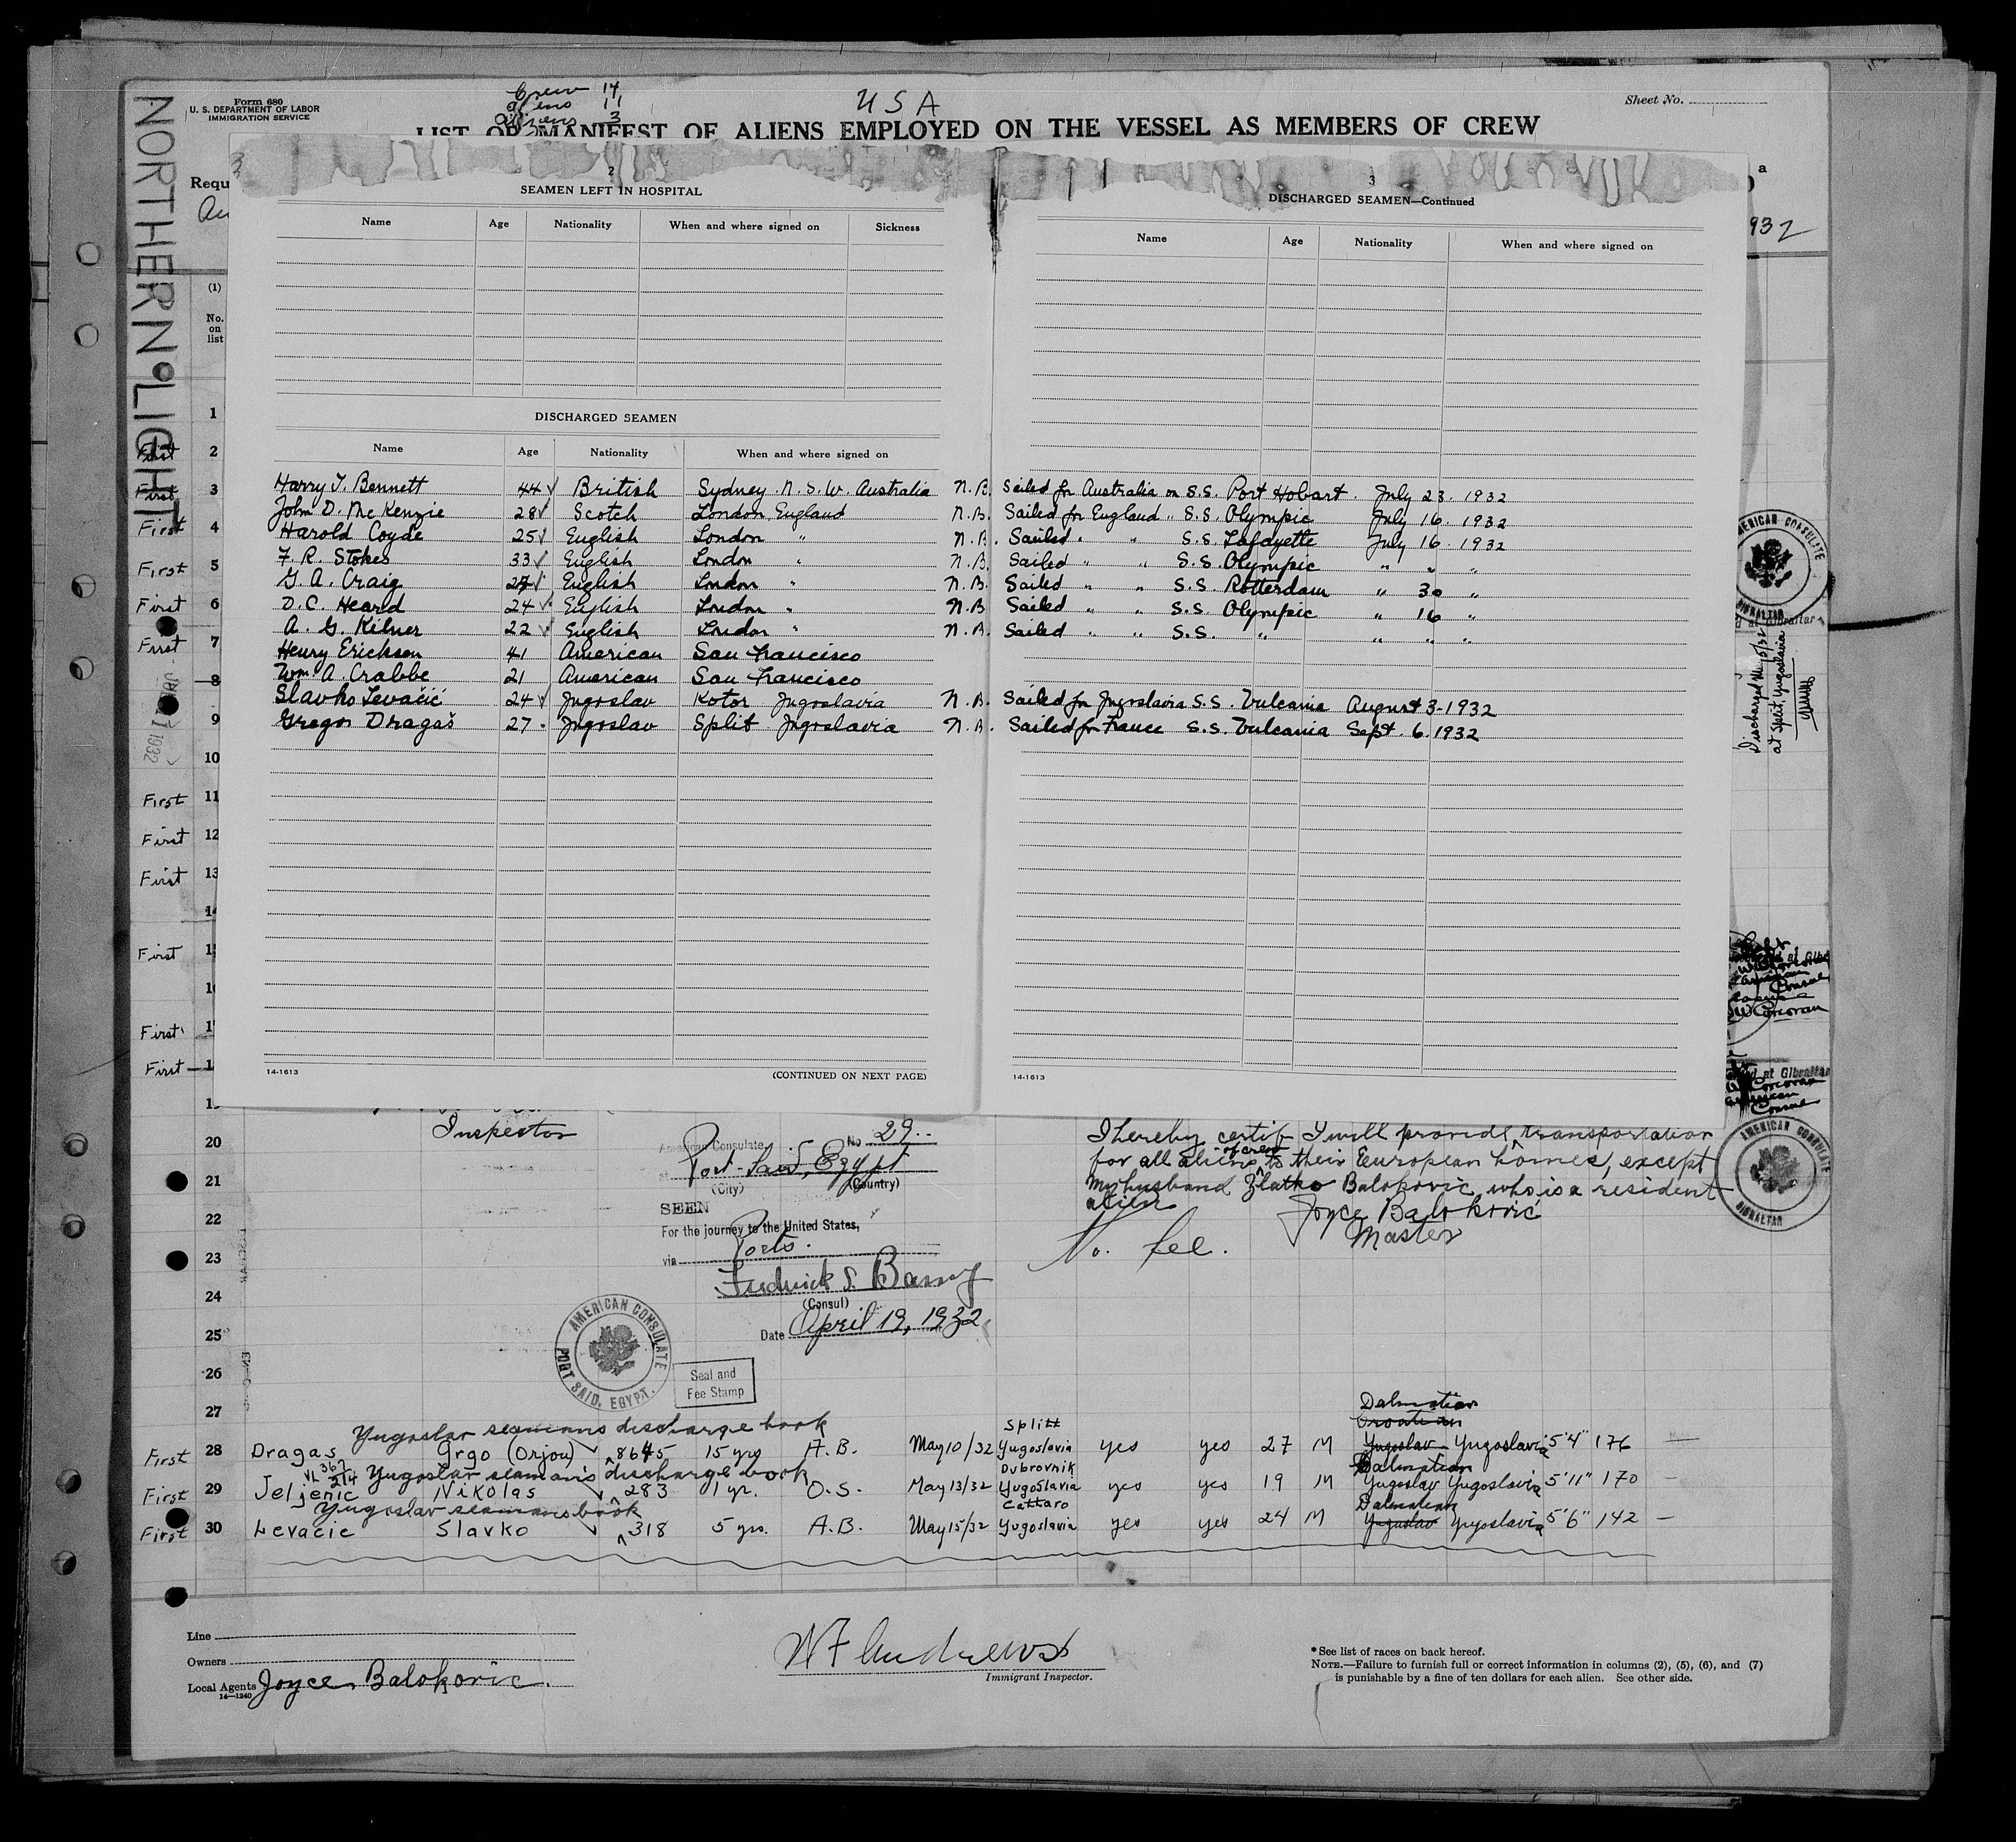 NORTHERN LIGHT
Form 680
U. S. DEPARTMENT OF LABOR
IMMIGRATION SERVICE
Crew 14
aliens 11
3
USA
Sheet No.
LIST OR MANIFEST OF ALIENS EMPLOYED ON THE VESSEL AS MEMBERS OF CREW
Requ
a
932
(1)
No. on list
2
SEAMEN LEFT IN HOSPITAL
Name Age Nationality When and where signed on Sickness
3
DISCHARGED SEAMEN—Continued
Name Age Nationality When and where signed on
DISCHARGED SEAMEN
Name Age Nationality When and where signed on
Harry T. Bennett 44 British Sydney N.S.W. Australia N.B. Sailed for Australia on S.S. Port Hobart. July 23. 1932
John D. McKenzie 28 Scotch London England N.B. Sailed for England " S.S. Olympic July 16. 1932
Harold Coyde 25 English London " N.B. Sailed " " S.S. Lafayette July 16. 1932
F. R. Stokes 33 English London " N.B. Sailed " " S.S. Olympic " " "
G. A. Craig 27 English London " N.B. Sailed " " S.S. Rotterdam " 30 "
D. C. Heard 24 English London " N.B Sailed " " S.S. Olympic " 16 "
A. G. Kilner 22 English London " N.B. Sailed " " S.S. " " " "
Henry Erickson 41 American San Francisco
Wm. A. Crabbe 21 American San Francisco
Slavko Levačić 24 Jugoslav Kotor Jugoslavia N.B. Sailed for Jugoslavia S.S. Vulcania August 3-1932
Gregor Dragaš 27 Jugoslav Split Jugoslavia N.B. Sailed for France S.S. Vulcania Sept. 6. 1932
14-1613 (CONTINUED ON NEXT PAGE)
14-1613
1
First 2
First 3
First 4
First 5
First 6
First 7
8
9
10
First 11
First 12
First 13
14
First 1
1
First 1
First 1
1
20
21
22
23
24
25
26
27
AMERICAN CONSULATE
GIBRALTAR
Discharged
at Split, Yugoslavia
Consul
Corcoran
at Gibraltar
Corcoran
Consul
AMERICAN CONSULATE
GIBRALTAR
Inspector
American Consulate No 29
at Port-Said, Egypt
(City) (Country)
SEEN
For the journey to the United States,
via Ports.
Frederick S. Barny
(Consul)
Date April 19, 1932
AMERICAN CONSULATE
PORT SAID, EGYPT.
Seal and
Fee Stamp
I hereby certify I will provide transportation
for all aliens of crew to their European homes, except
my husband Zlatko Balokovic who is a resident
alien
Joyce Balokovic
Master
No. fee.
Yugoslav seamans discharge book
First 28 Dragas Grgo (Orjou) 8645 15 yrs A.B. May 10/32 Splitt Yugoslavia yes yes 27 M Dalmatian Croatian Yugoslav Yugoslavia 5'4" 176 —
Yugoslav seaman's discharge book
First 29 Jeljenic Nikolas 283 1 yr. O.S. May 13/32 Dubrovnik Yugoslavia yes yes 19 M Dalmatian Yugoslav Yugoslavia 5'11" 170
Yugoslav seamans book
First 30 Levacic Slavko 318 5 yrs. A.B. May 15/32 Cattaro Yugoslavia yes yes 24 M Dalmatian Yugoslav Yugoslavia 5'6" 142 —
Line
Owners
Local Agents Joyce Balokovic.
14—1240
Immigrant Inspector.
* See list of races on back hereof.
NOTE.—Failure to furnish full or correct information in columns (2), (5), (6), and (7)
is punishable by a fine of ten dollars for each alien. See other side.